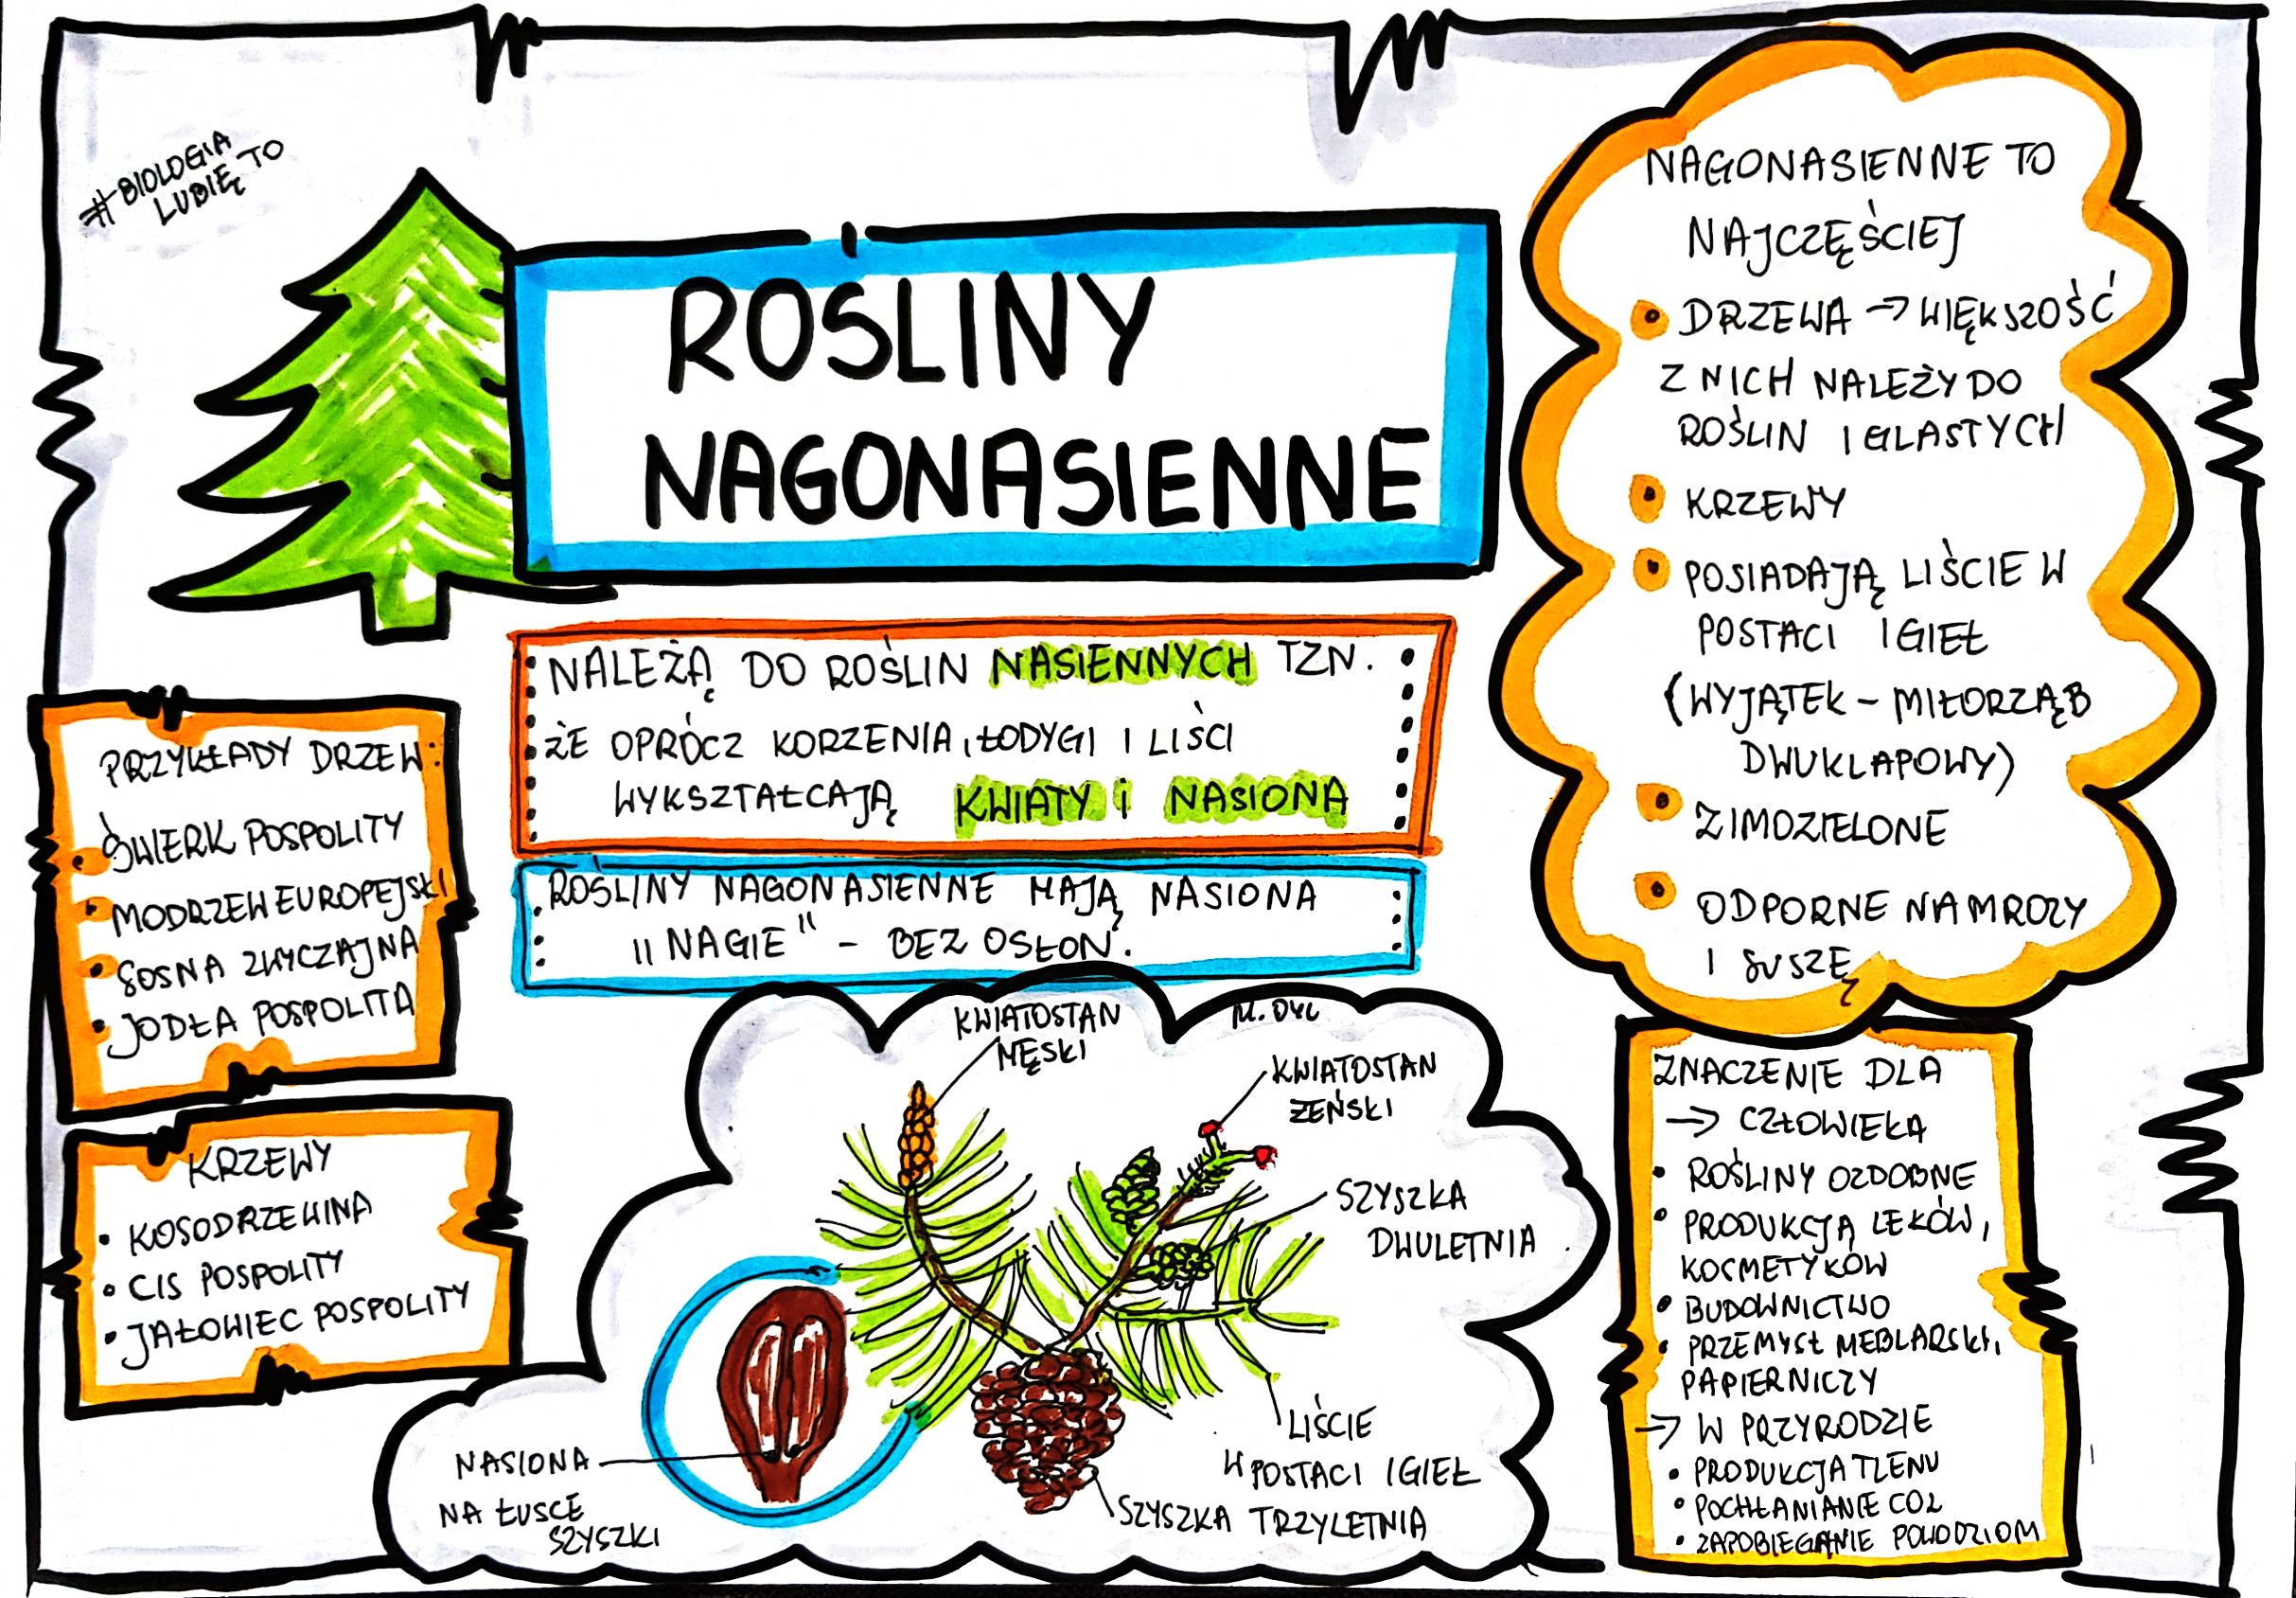 #BIOLOGIA
LUBIĘ TO
ROŚLINY
NAGONASIENNE
NALEŻĄ DO ROŚLIN NASIENNYCH TZN.
ŻE OPRÓCZ KORZENIA, ŁODYGI I LIŚCI
WYKSZTAŁCAJĄ KWIATY i NASIONA
ROŚLINY NAGONASIENNE MAJĄ NASIONA
"NAGIE" - BEZ OSŁON.
PRZYKŁADY DRZEW:
ŚWIERK POSPOLITY
MODRZEW EUROPEJSKI
SOSNA ZWYCZAJNA
JODŁA POSPOLITA
KRZEWY
• KOSODRZEWINA
• CIS POSPOLITY
• JAŁOWIEC POSPOLITY
KWIATOSTAN
MĘSKI
M. DYL
KWIATOSTAN
ŻEŃSKI
SZYSZKA
DWULETNIA
LIŚCIE
W POSTACI IGIEŁ
SZYSZKA TRZYLETNIA
NASIONA
NA ŁUSCE
SZYSZKI
NAGONASIENNE TO
NAJCZĘŚCIEJ
• DRZEWA → WIĘKSZOŚĆ
Z NICH NALEŻY DO
ROŚLIN IGLASTYCH
• KRZEWY
• POSIADAJĄ LIŚCIE W
POSTACI IGIEŁ
(WYJĄTEK - MIŁORZĄB
DWUKLAPOWY)
• ZIMOZIELONE
• ODPORNE NA MROZY
I SUSZĘ
ZNACZENIE DLA
→ CZŁOWIEKA
• ROŚLINY OZDOBNE
• PRODUKCJA LEKÓW,
KOSMETYKÓW
• BUDOWNICTWO
• PRZEMYSŁ MEBLARSKI,
PAPIERNICZY
→ W PRZYRODZIE
• PRODUKCJA TLENU
• POCHŁANIANIE CO2
• ZAPOBIEGANIE POWODZIOM